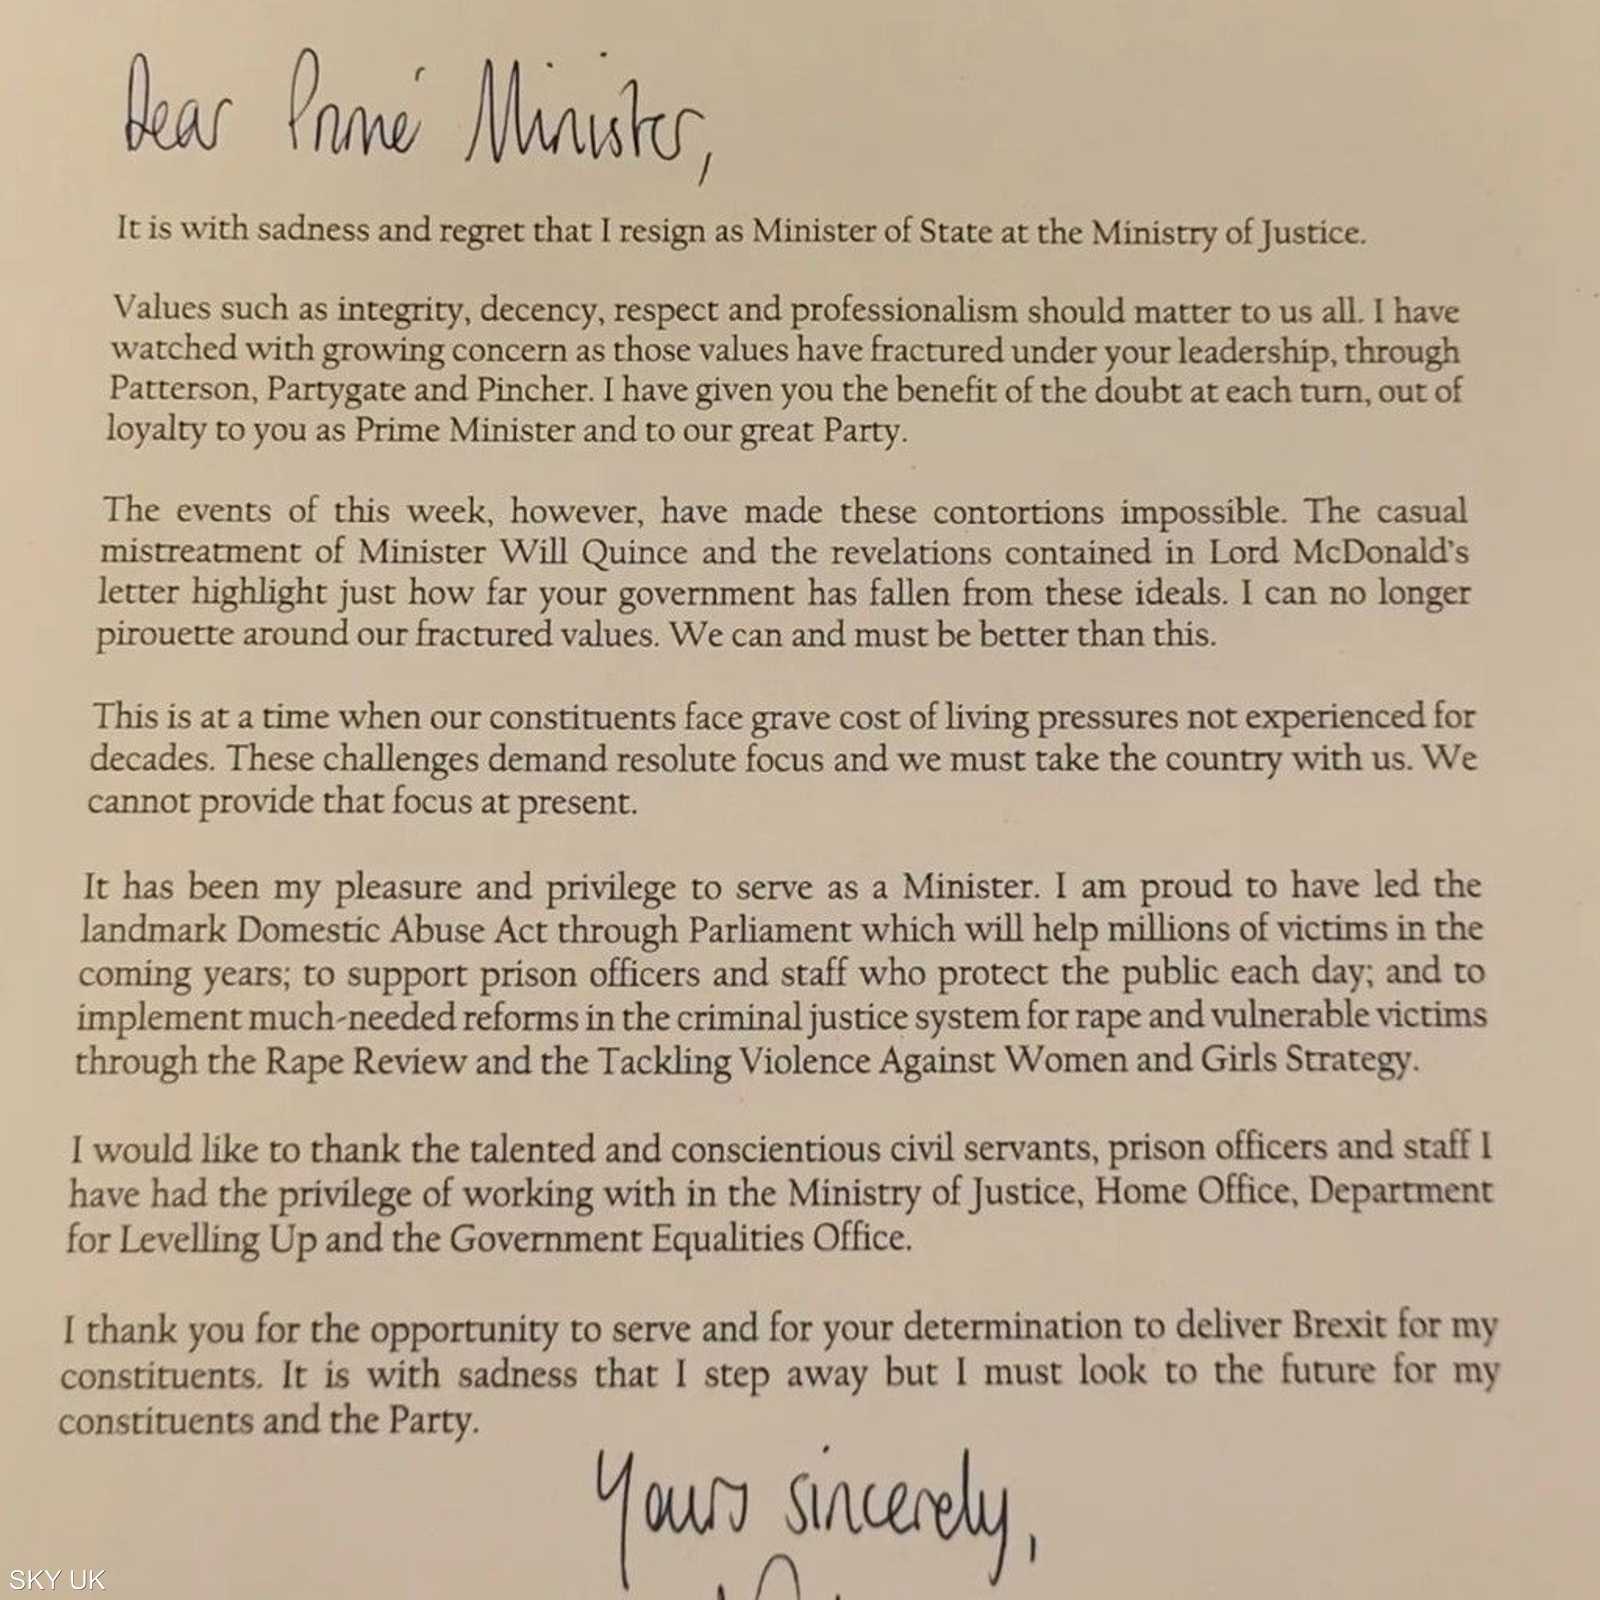 Dear Prime Minister,
It is with sadness and regret that I resign as Minister of State at the Ministry of Justice.
Values such as integrity, decency, respect and professionalism should matter to us all. I have
watched with growing concern as those values have fractured under your leadership, through
Patterson, Partygate and Pincher. I have given you the benefit of the doubt at each turn, out of
loyalty to you as Prime Minister and to our great Party.
The events of this week, however, have made these contortions impossible. The casual
mistreatment of Minister Will Quince and the revelations contained in Lord McDonald's
letter highlight just how far your government has fallen from these ideals. I can no longer
pirouette around our fractured values. We can and must be better than this.
This is at a time when our constituents face grave cost of living pressures not experienced for
decades. These challenges demand resolute focus and we must take the country with us. We
cannot provide that focus at present.
It has been my pleasure and privilege to serve as a Minister. I am proud to have led the
landmark Domestic Abuse Act through Parliament which will help millions of victims in the
coming years; to support prison officers and staff who protect the public each day; and to
implement much-needed reforms in the criminal justice system for rape and vulnerable victims
through the Rape Review and the Tackling Violence Against Women and Girls Strategy.
I would like to thank the talented and conscientious civil servants, prison officers and staff I
have had the privilege of working with in the Ministry of Justice, Home Office, Department
for Levelling Up and the Government Equalities Office.
I thank you for the opportunity to serve and for your determination to deliver Brexit for my
constituents. It is with sadness that I step away but I must look to the future for my
constituents and the Party.
Yours sincerely,
SKY UK